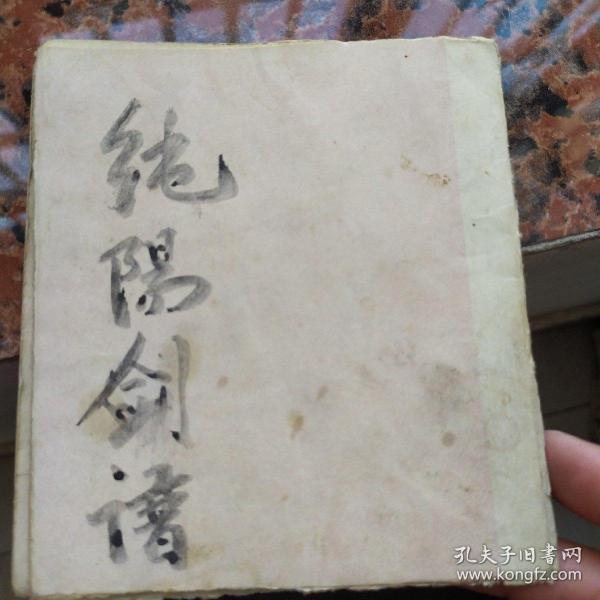 純陽劍譜
孔夫子旧书网
www.kongfz.com